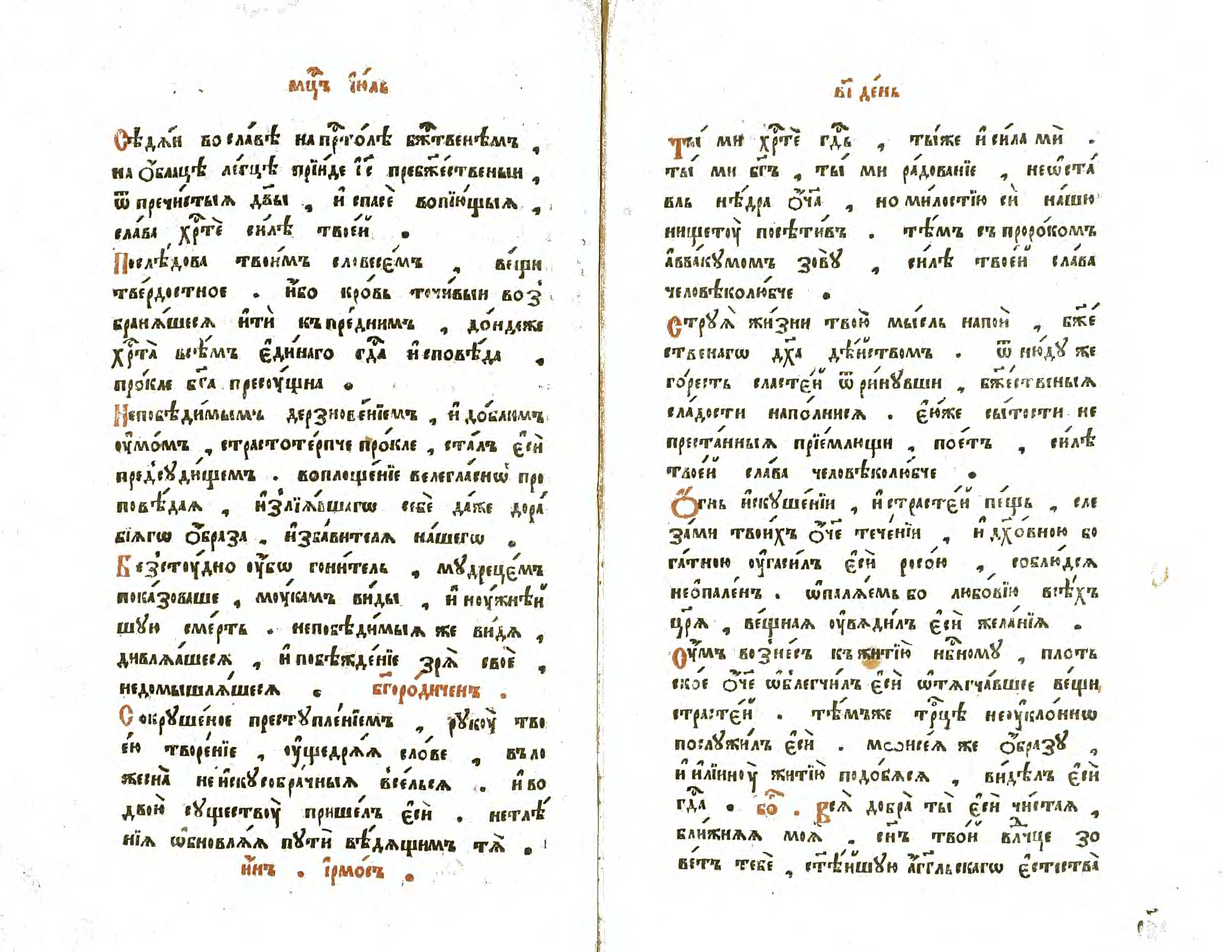 мц҃ъ і҆ю́ль
Сѣдѧ́й во сла́вѣ на прⷭ҇то́лѣ бж҃твенѣмъ ,
на ѻ҆́блацѣ ле́гцѣ прїи́де і҆с҃ пребж҃ественыи ,
ѿ пречи́стыѧ дв҃ы , и҆ спасѐ вопїю́щыѧ ,
сла́ва хрⷭ҇тѐ си́лѣ твое́й .
Послѣ́дова твои́мъ словесе́мъ , ве́щи
тве́рдостное . и҆́бо кро́вь точи́выи воз
бранѧ́шесѧ и҆тѝ къ пре́днимъ , до́ндеже
хрⷭ҇та̀ всѣ́мъ є҆ди́наго гдⷭ҇а и҆сповѣ́да .
про́кле бг҃а пресоу́щна .
Непобѣди́мымъ дерзнове́нїемъ , и҆ до́блимъ
оу҆мо́мъ , страстоте́рпче про́кле , ста́лъ є҆сѝ
пред̾сꙋди́щемъ . воплоще́нїе велегла́снѡ про
повѣ́даѧ , и҆злїѧ́вшагѡ себѐ да́же до ра́
бїѧгѡ ѻ҆́браза , и҆зба́вителѧ на́шегѡ .
Безстоу́дно оу҆́бѡ гони́тель , мꙋдрецє́мъ
пока́зоваше , моу́камъ ви́ды , и҆ ноу́жнѣй
шꙋю сме́рть . непобѣди́мыѧ же ви́дѧ ,
дивлѧ́шесѧ , и҆ побѣжде́нїе зрѧ̀ своѐ ,
недомышлѧ́шесѧ . бг҃оро́диченъ .
Сокрꙋше́ное престꙋпле́нїемъ , рꙋкоу̀ тво
є́ю творе́нїе , оу҆ще́дрѧѧ сло́ве , въ ло
жесна̀ неискꙋсобра́чныѧ всели́сѧ . и҆ во
двою̀ сꙋществоу̀ прише́лъ є҆сѝ . нетлѣ́
нїѧ ѡ҆бновлѧ́ѧ пꙋтѝ вѣ́дѧщимъ тѧ̀ .
и҆́нъ . і҆рмо́съ .
в҃і де́нь
Ты́ ми хрⷭ҇тѐ гдⷭ҇ь , ты́же и҆ си́ла мѝ .
ты́ ми бг҃ъ , ты́ ми ра́дованїе , неѡ҆ста́
вль нѣ́дра ѻ҆́ч҃а , но ми́лостїю си́ на́шю
нищетоу̀ посѣти́въ . тѣ́мъ съ проро́комъ
а҆ввакꙋ́момъ зовꙋ̀ , си́лѣ твое́й сла́ва
человѣколю́бче .
Стрꙋѧ̀ жи́зни твою̀ мы́сль напоѝ , бж҃е
ственагѡ дх҃а дѣ́йствомъ . ѿ ню́дꙋ же
го́ресть сласте́й ѿри́нꙋвши , бж҃е́ственыѧ
сла́дости напо́лнисѧ . є҆ѧ́же сы́тости не
преста́нныѧ прїе́млющи , пое́тъ , си́лѣ
твое́й сла́ва человѣколю́бче .
Ѻ҆́гнь и҆скꙋше́нїи , и҆ страсте́й пе́щь , сле
за́ми твои́хъ ѻ҆́ч҃е тече́нїи , и҆ дх҃о́вною бо
га́тною оу҆гаси́лъ є҆сѝ росо́ю , соблюде́сѧ
неѡпале́нъ . ѡ҆палѧ́емь бо любо́вїю всѣ́хъ
цр҃ѧ̀ , ве́щнаѧ оу҆вѧди́лъ є҆сѝ жела́нїѧ .
Оу҆́мъ возне́съ къ житїю̀ нб҃номꙋ , пло́ть
ское ѻ҆́ч҃е ѡ҆блегчи́лъ є҆сѝ ѡ҆тѧгча́вшее ве́щи
страсте́й . тѣ́мъже трⷪ҇цѣ неоу҆кло́ннѡ
послꙋжи́лъ є҆сѝ . мѡисе́ѧ же ѻ҆́бразꙋ ,
и҆ и҆лїиноу̀ житїю̀ подо́бѧсѧ , ви́дѣлъ є҆сѝ
гдⷭ҇а . бо҃ . Всѧ̀ добра̀ ты̀ є҆сѝ чи́стаѧ ,
бли́жнѧѧ моѧ̀ . сн҃ъ тво́й влⷣчце зо
ве́тъ тебѐ , ст҃ѣ́йшꙋю а҆́гг҃льскагѡ є҆стества̀